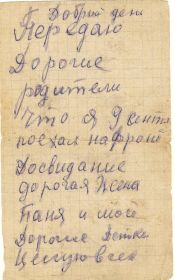 Добрий день
Передаю
Дорогие
родители
что я 9 сентя
поехал на фронт
Досвидание
дорогая Жена
Паня и мое
Дорогие Детки
Целую всех